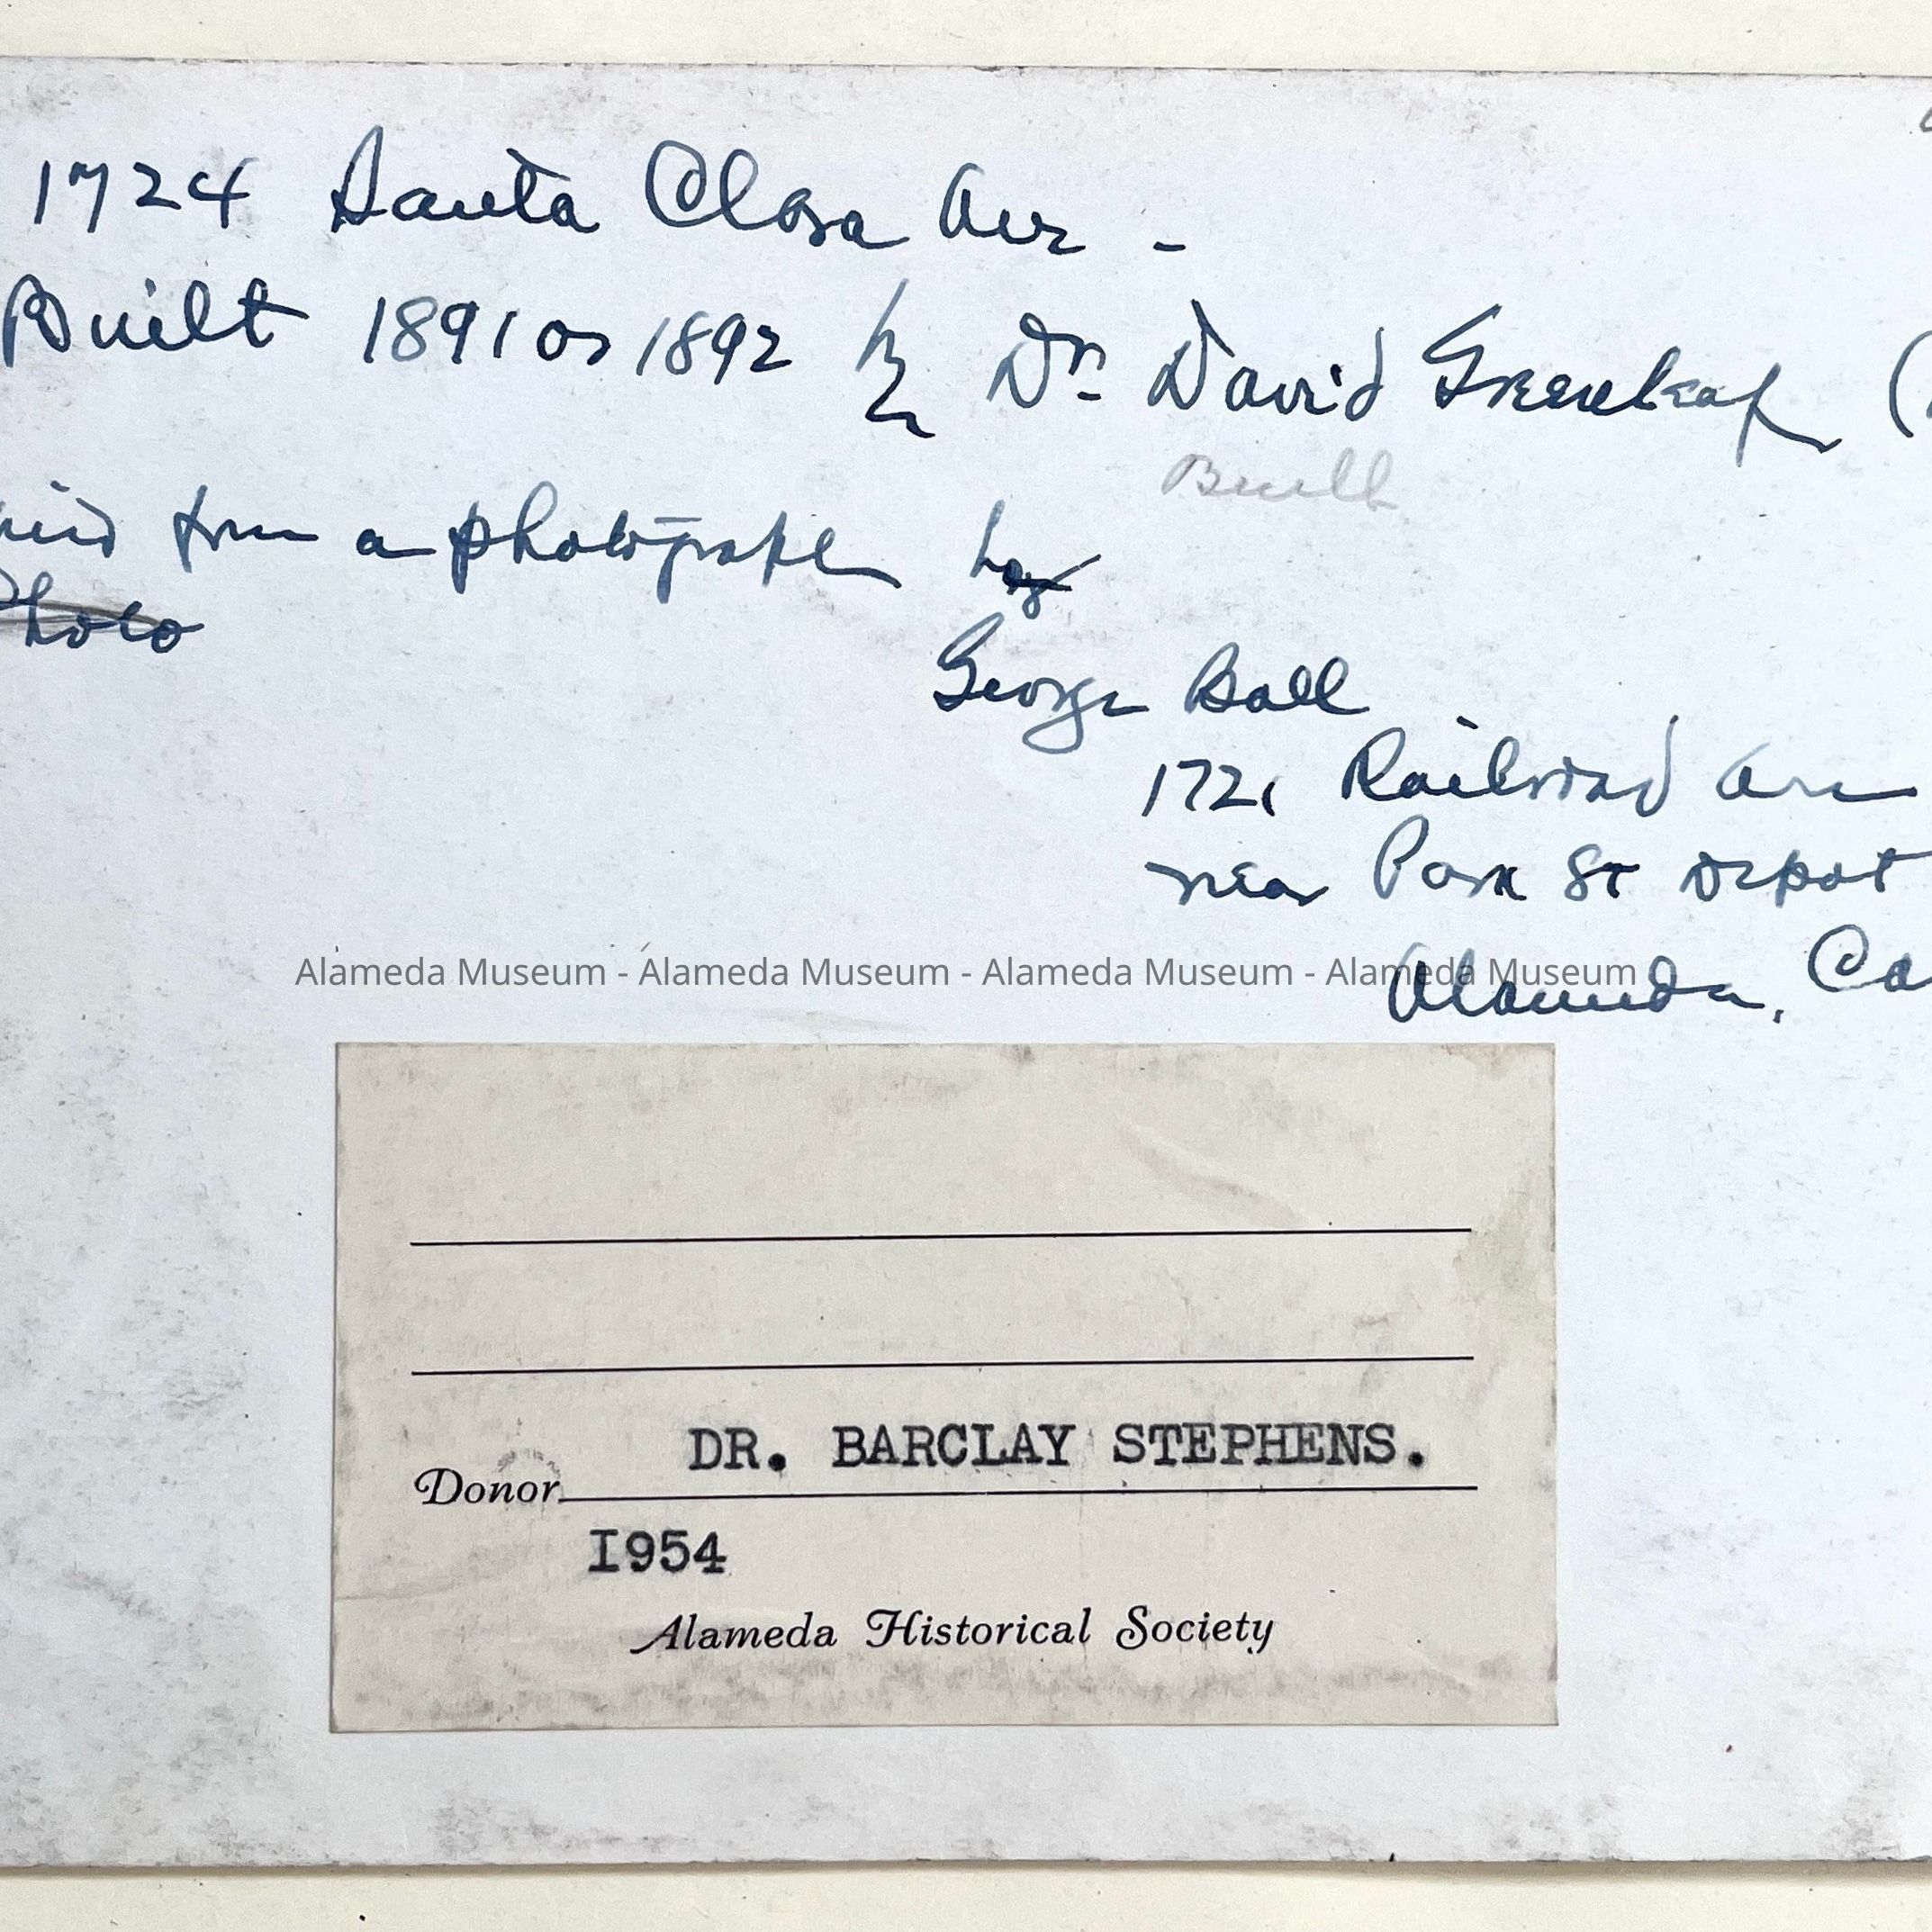 1724 Santa Clara Ave -
Built 1891 or 1892 by Dr David Greenleaf (
from a photograph by
Photo
Built
George Ball
1721 Railroad Ave
near Park St Depot
Alameda, Ca
Alameda Museum - Alameda Museum - Alameda Museum - Alameda Museum
DR. BARCLAY STEPHENS.
Donor
I954
Alameda Historical Society